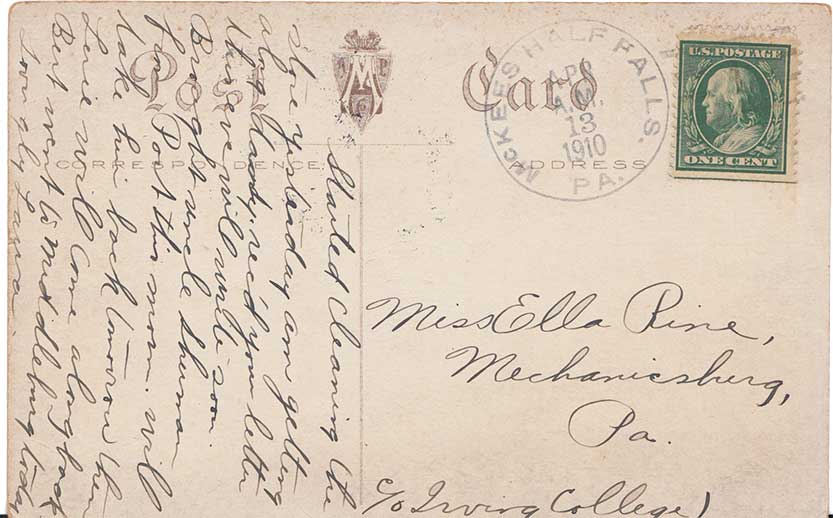 Post Card
CORRESPONDENCE
ADDRESS
A M P C
McKEES HALF FALLS.
APR
A.M.
13
1910
PA.
U.S. POSTAGE
ONE CENT
Started cleaning the
store yesterday am getting
along dandy, rec'd your letter
this eve, will write soon.
Brought uncle Sherman
from Port this morn. will
take him back tomorrow then
Lurie will come along back
Bert went to Middleburg today
Lovingly Laura.
Miss Ella Rine,
Mechanicsburg,
Pa.
c/o Irving College)